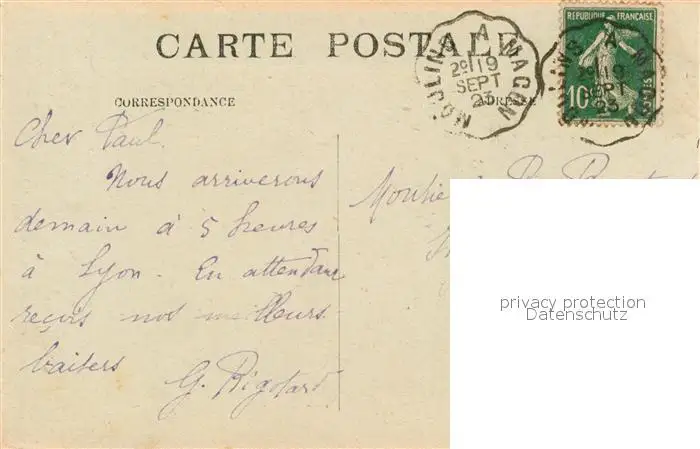 CARTE POSTALE
MOULINS A MACON
2º 19
SEPT
23
REPUBLIQUE FRANÇAISE
10
POSTES
CORRESPONDANCE
ADRESSE
Cher Paul.
Nous arriverons
demain à 5 heures
à Lyon. En attendant
reçois nos meilleurs
baisers
G. Rigotard
privacy protection
Datenschutz